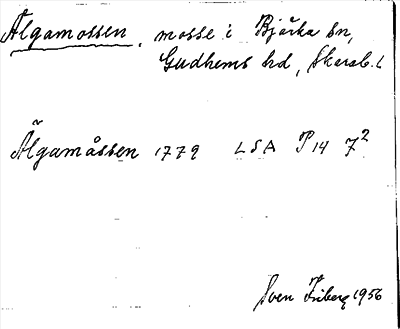 Älgamossen, mosse i Bjurka sn,
Gudhems hd, Skarab. l
Älgamåssen 1779 LSA P14 7²
Sven Friberg 1956